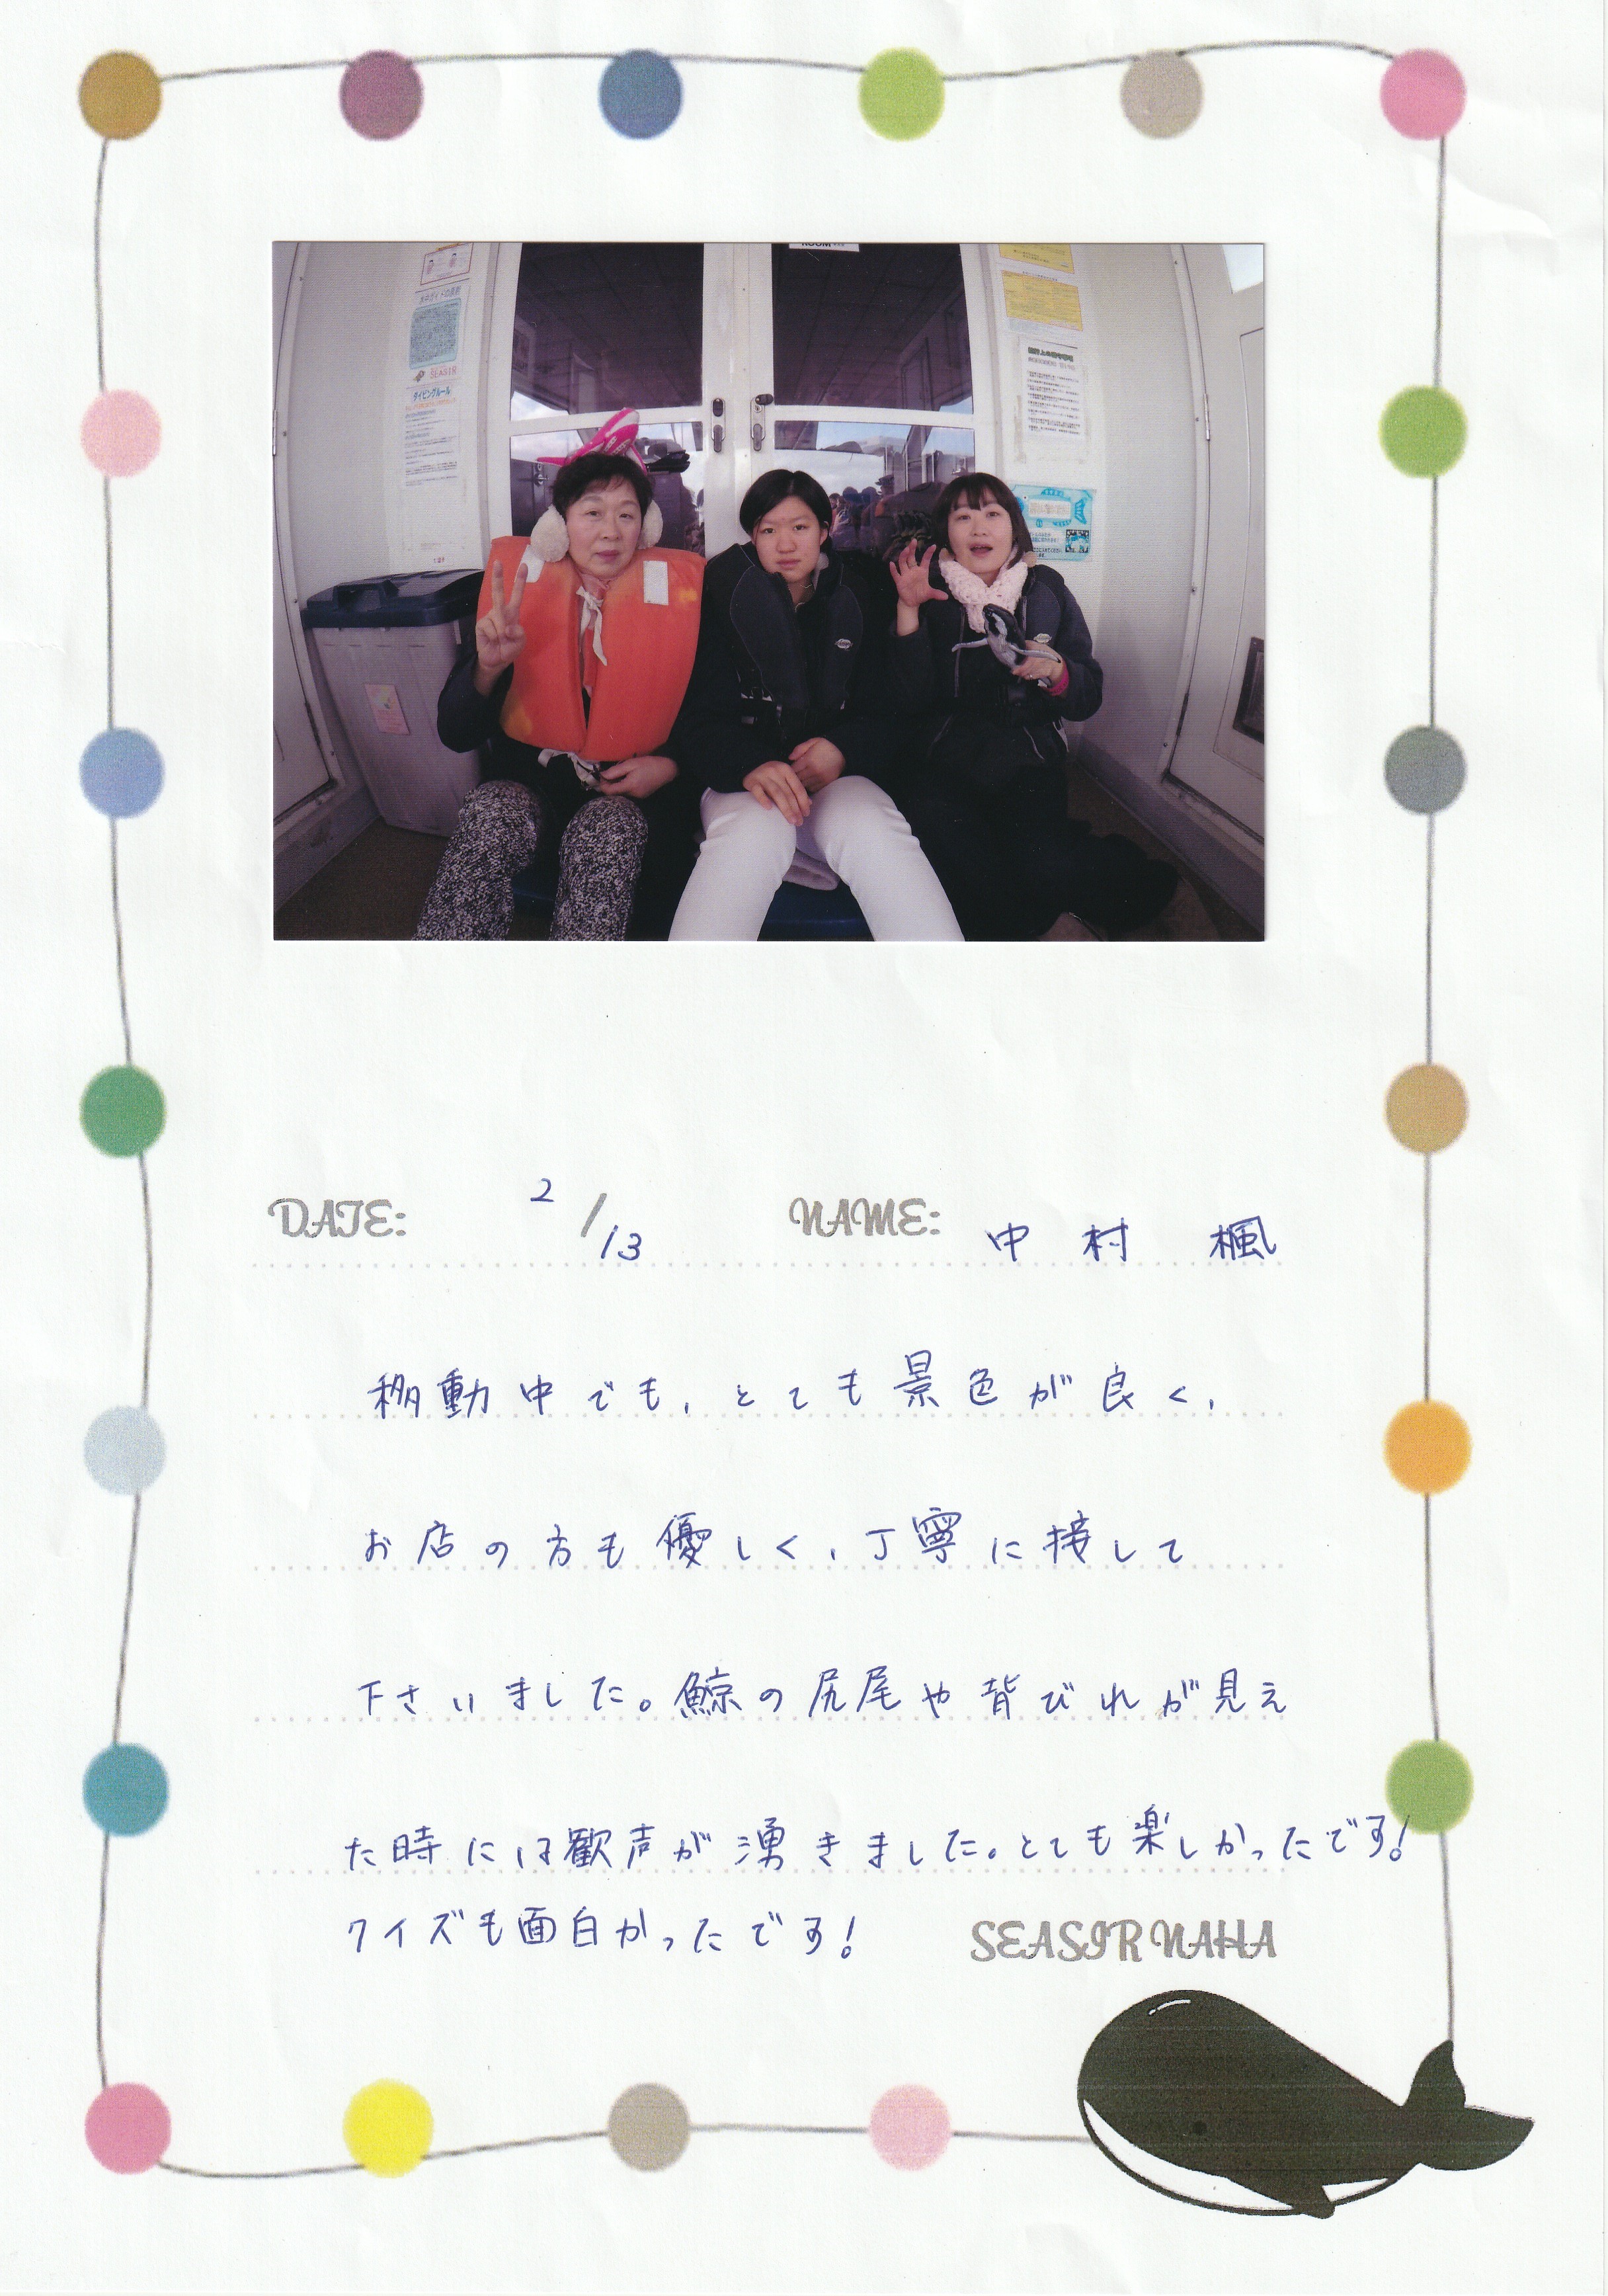 ROOM
水中ガイドの素顔
SEASIR
ダイビングルール
DATE: 2/13 NAME: 中村 楓
移動中でも、とても景色が良く、
お店の方も優しく、丁寧に接して
下さいました。鯨の尻尾や背びれが見え
た時には歓声が湧きました。とても楽しかったです!
クイズも面白かったです!
SEASIR NAHA